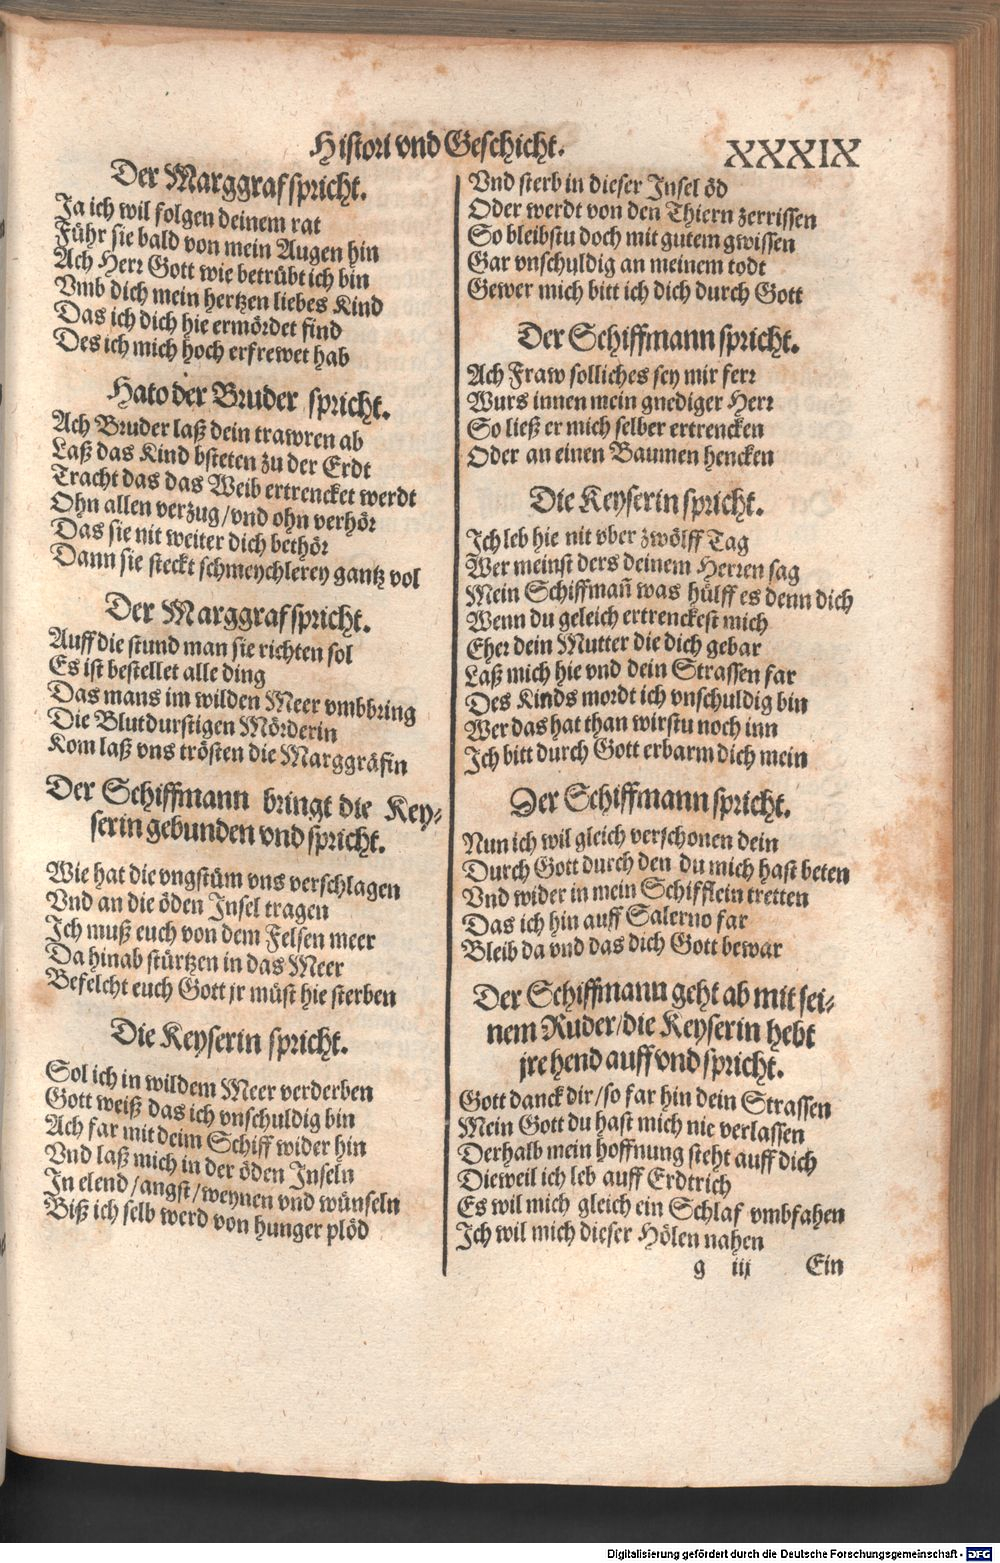 Histori vnd Geschicht.
XXXIX
Der Marggraf spricht.
Ja ich wil folgen deinem rat
Führ sie bald von mein Augen hin
Ach Herr Gott wie betrübt ich bin
Vmb dich mein hertzen liebes Kind
Das ich dich hie ermördet find
Des ich mich hoch erfrewet hab
Hato der Bruder spricht.
Ach Bruder laß dein trawren ab
Laß das Kind bsteten zu der Erdt
Tracht das das Weib ertrencket werdt
Ohn allen verzug/vnd ohn verhör
Das sie nit weiter dich bethör
Dann sie steckt schmeychlerey gantz vol
Der Marggraf spricht.
Auff die stund man sie richten sol
Es ist bestellet alle ding
Das mans im wilden Meer vmbbring
Die Blutdurstigen Mörderin
Kom laß vns trösten die Marggräfin
Der Schiffmann bringt die Key-
serin gebunden vnd spricht.
Wie hat die vngstüm vns verschlagen
Vnd an die öden Insel tragen
Ich muß euch von dem Felsen meer
Da hinab stürtzen in das Meer
Befelcht euch Gott jr müst hie sterben
Die Keyserin spricht.
Sol ich in wildem Meer verderben
Gott weiß das ich vnschuldig bin
Ach far mit deim Schiff wider hin
Vnd laß mich in der öden Inseln
In elend/angst/weynen vnd wünseln
Biß ich selb werd von hunger plöd
Vnd sterb in dieser Insel öd
Oder werdt von den Thiern zerrissen
So bleibstu doch mit gutem gwissen
Gar vnschuldig an meinem todt
Gewer mich bitt ich dich durch Gott
Der Schiffmann spricht.
Ach Fraw solliches sey mir ferr
Wurs innen mein gnediger Herr
So ließ er mich selber ertrencken
Oder an einen Baumen hencken
Die Keyserin spricht.
Ich leb hie nit vber zwölff Tag
Wer meinst ders deinem Herren sag
Mein Schiffmañ was hülff es denn dich
Wenn du geleich ertrenckest mich
Eher dein Mutter die dich gebar
Laß mich hie vnd dein Strassen far
Des Kinds mordt ich vnschuldig bin
Wer das hat than wirstu noch inn
Ich bitt durch Gott erbarm dich mein
Der Schiffmann spricht.
Nun ich wil gleich verschonen dein
Durch Gott durch den du mich hast beten
Vnd wider in mein Schifflein tretten
Das ich hin auff Salerno far
Bleib da vnd das dich Gott bewar
Der Schiffmann geht ab mit sei-
nem Ruder/die Keyserin hebt
jre hend auff vnd spricht.
Gott danck dir/so far hin dein Strassen
Mein Gott du hast mich nie verlassen
Derhalb mein hoffnung steht auff dich
Dieweil ich leb auff Erdtrich
Es wil mich gleich ein Schlaf vmbfahen
Ich wil mich dieser Hölen nahen
g iij Ein
Digitalisierung gefördert durch die Deutsche Forschungsgemeinschaft - DFG